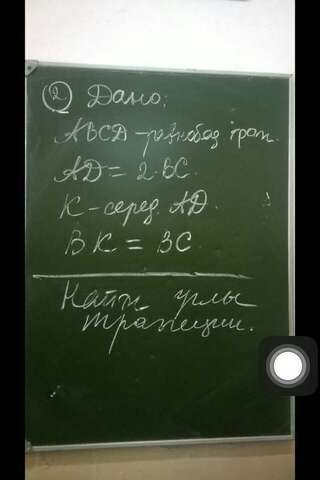 ② Дано:
ABCD - равнобед трап.
AD = 2 BC.
K - серед. AD.
BK = BC
Найти углы
трапеции.